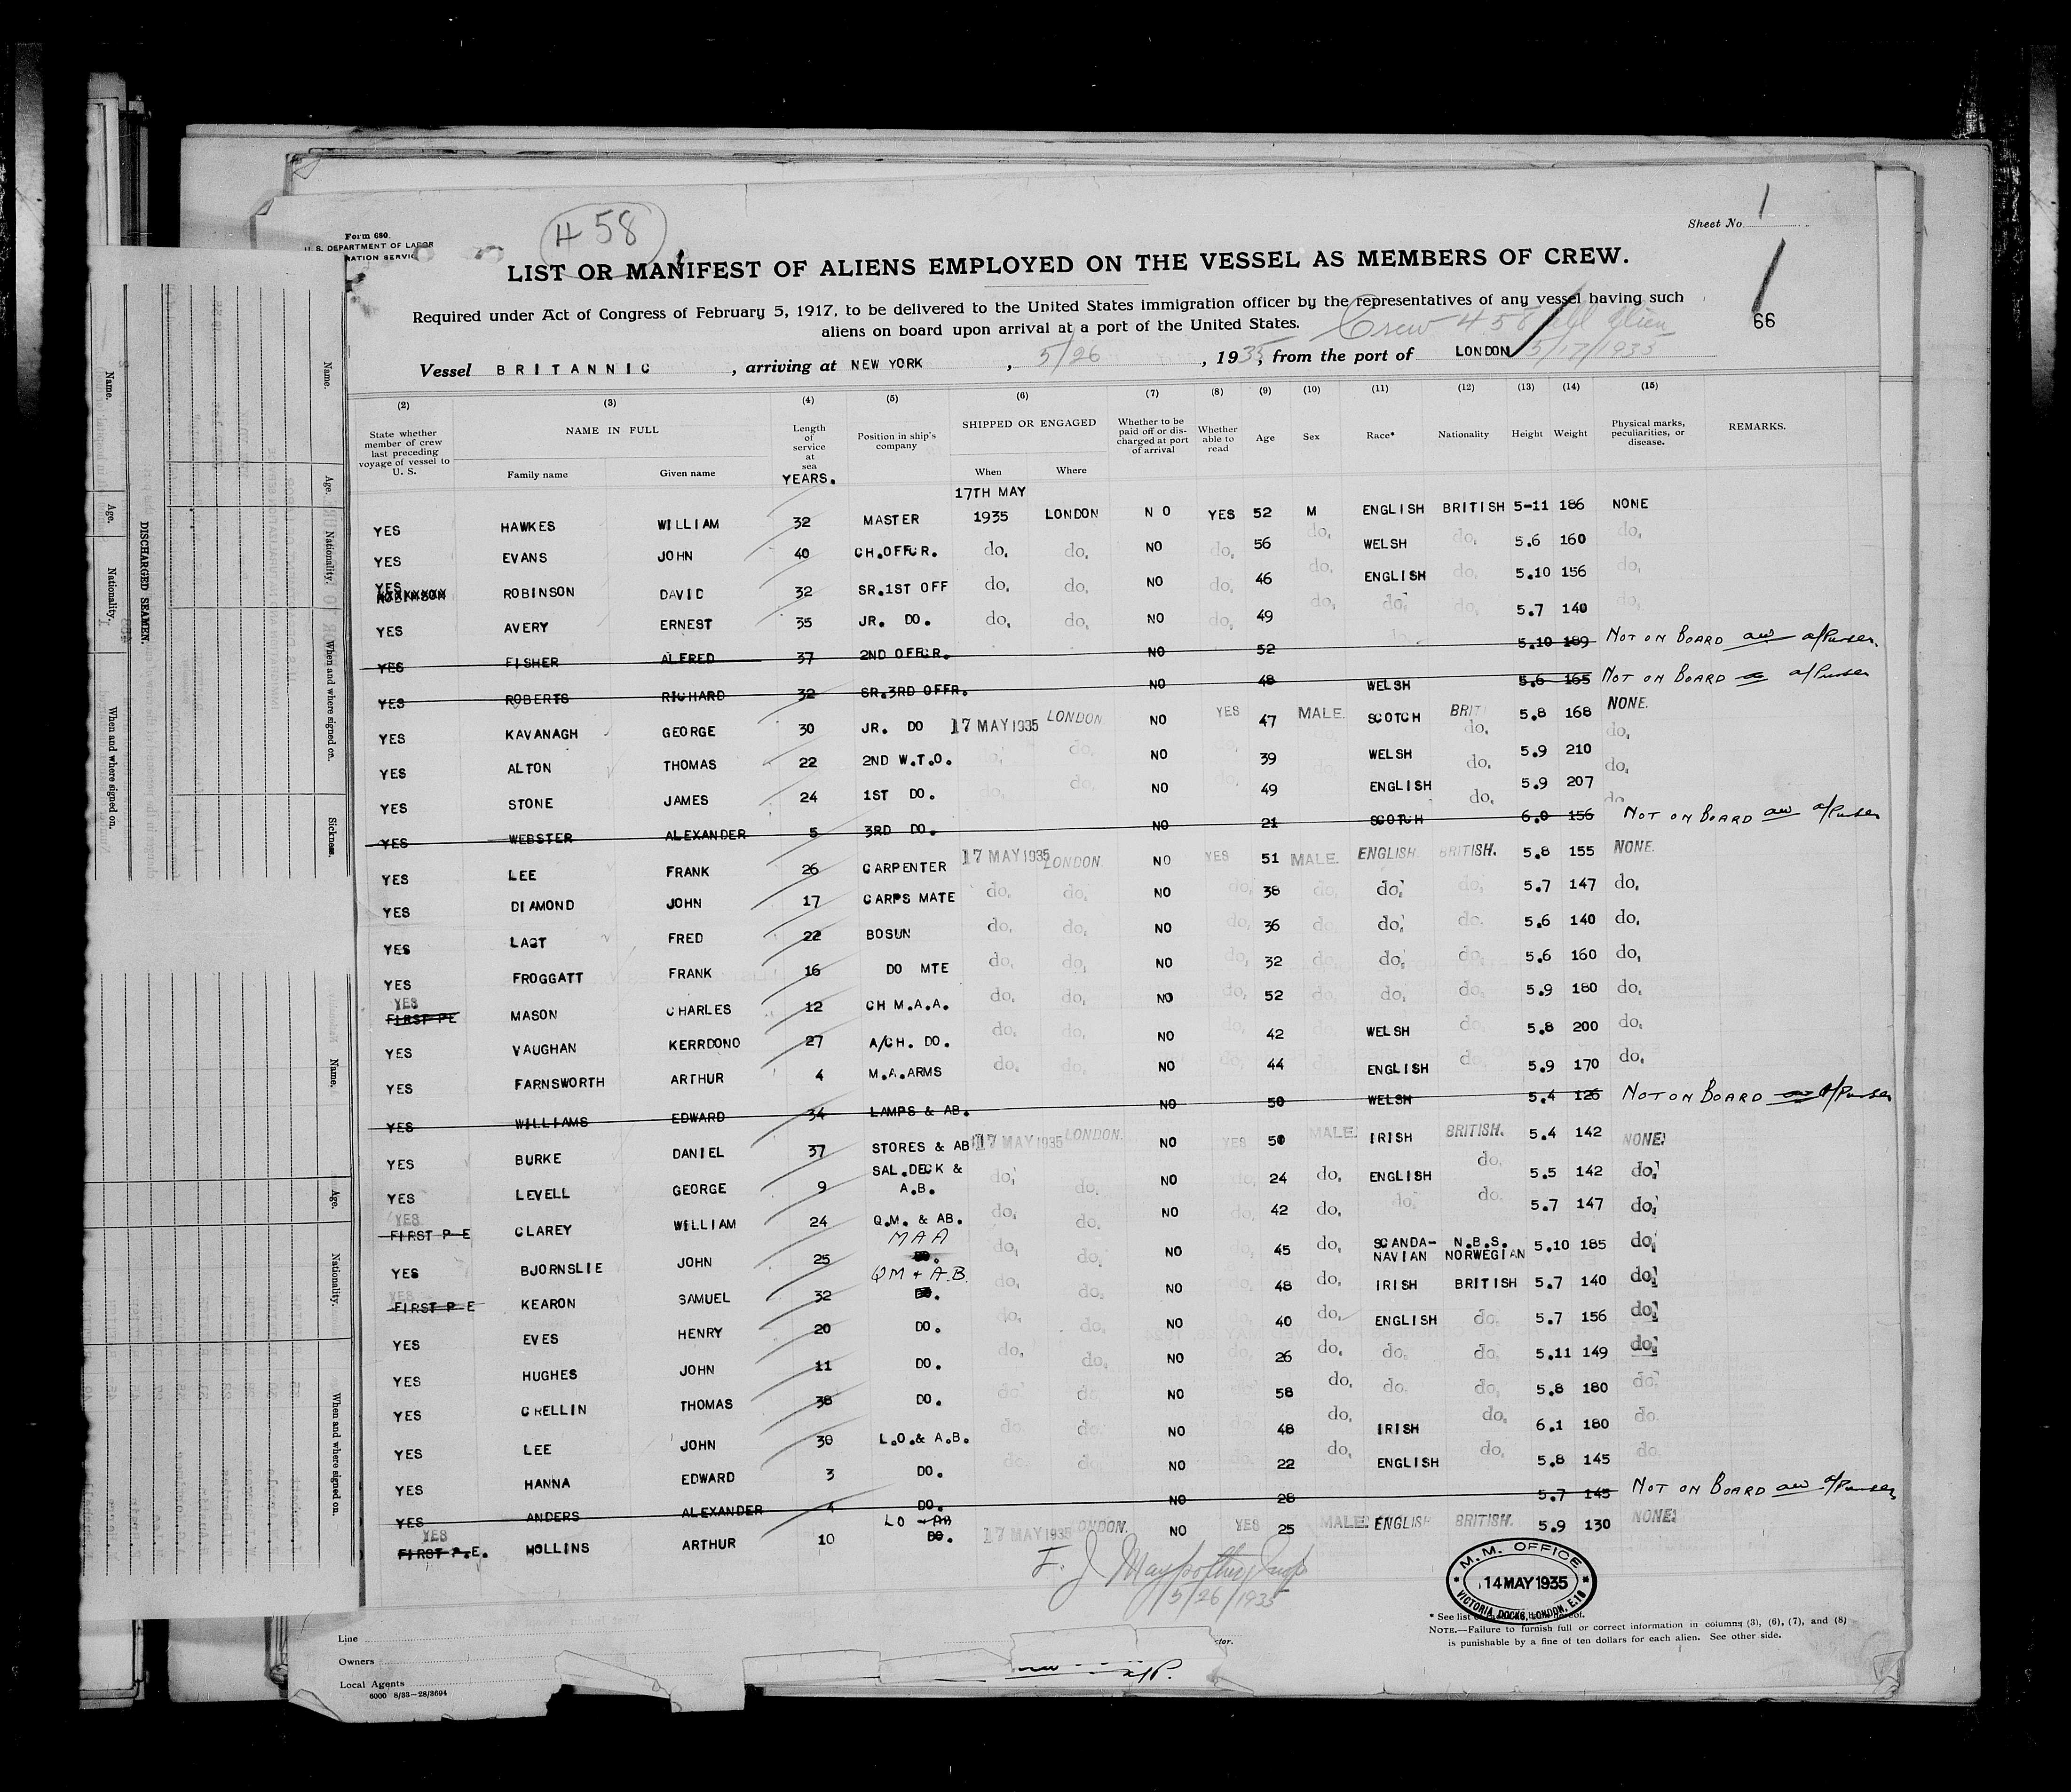 458
Sheet No. 1
Form 680
U. S. DEPARTMENT OF LABOR
1
66
LIST OR MANIFEST OF ALIENS EMPLOYED ON THE VESSEL AS MEMBERS OF CREW.
Required under Act of Congress of February 5, 1917, to be delivered to the United States immigration officer by the representatives of any vessel having such
aliens on board upon arrival at a port of the United States. Crew 458 all Alien
Vessel BRITANNIC, arriving at NEW YORK, 5/26, 1935, from the port of LONDON 5/17/1935
(2) (3) (4) (5) (6) (7) (8) (9) (10) (11) (12) (13) (14) (15)
State whether member of crew last preceding voyage of vessel to U. S.
NAME IN FULL
Family name Given name
Length of service at sea YEARS.
Position in ship's company
SHIPPED OR ENGAGED
When Where
Whether to be paid off or discharged at port of arrival
Whether able to read
Age Sex Race* Nationality Height Weight
Physical marks, peculiarities, or disease.
REMARKS.
17TH MAY
YES HAWKES WILLIAM 32 MASTER 1935 LONDON NO YES 52 M ENGLISH BRITISH 5-11 186 NONE
YES EVANS JOHN 40 CH.OFFCR. do. do. NO do. 56 do. WELSH do. 5.6 160 do.
YES ROBINSON ROBINSON DAVID 32 SR.1ST OFF do. do. NO do. 46 do. ENGLISH do. 5.10 156 do.
YES AVERY ERNEST 35 JR. DO. do. do. NO do. 49 do. do. do. 5.7 140 do.
YES FISHER ALFRED 37 2ND OFFCR. NO 52 5.10 189 NOT ON BOARD a/Purser
YES ROBERTS RICHARD 32 SR.3RD OFFR. NO 48 WELSH 5.6 165 NOT ON BOARD a/Purser
YES KAVANAGH GEORGE 30 JR. DO 17 MAY 1935 LONDON NO YES 47 MALE. SCOTCH BRIT do. 5.8 168 NONE.
YES ALTON THOMAS 22 2ND W.T.O. do. do. NO 39 WELSH do. 5.9 210 do.
YES STONE JAMES 24 1ST DO. do. do. NO 49 ENGLISH do. 5.9 207 do.
YES WEBSTER ALEXANDER 5 3RD DO. NO 21 SCOTCH 6.0 156 NOT ON BOARD a/Purser
YES LEE FRANK 26 CARPENTER 17 MAY 1935 LONDON. NO YES 51 MALE. ENGLISH. BRITISH. 5.8 155 NONE.
YES DIAMOND JOHN 17 CARPS MATE do. do. NO do. 38 do. do. do. 5.7 147 do.
YES LAST FRED 22 BOSUN do. do. NO do. 36 do. do. do. 5.6 140 do.
YES FROGGATT FRANK 16 DO MTE do. do. NO do. 32 do. do. do. 5.6 160 do.
YES FIRST PE MASON CHARLES 12 CH M.A.A. do. do. NO do. 52 do. do. do. 5.9 180 do.
YES VAUGHAN KERRDONO 27 A/CH. DO. do. do. NO do. 42 WELSH do. 5.8 200 do.
YES FARNSWORTH ARTHUR 4 M.A.ARMS do. do. NO do. 44 ENGLISH do. 5.9 170 do.
YES WILLIAMS EDWARD 34 LAMPS & AB. NO 50 WELSH 5.4 126 NOT ON BOARD a/Purser
YES BURKE DANIEL 37 STORES & AB 17 MAY 1935 LONDON. NO YES 50 MALE. IRISH BRITISH. 5.4 142 NONE.
YES LEVELL GEORGE 9 SAL.DECK & A.B. do. do. NO do. 24 do. ENGLISH do. 5.5 142 do.
YES FIRST P E CLAREY WILLIAM 24 Q.M. & AB. do. do. NO do. 42 do. do. do. 5.7 147 do.
YES BJORNSLIE JOHN 25 MAA DO. do. do. NO do. 45 do. SCANDA-NAVIAN N.B.S. NORWEGIAN 5.10 185 do.
YES FIRST P E KEARON SAMUEL 32 QM + A.B. DO. do. do. NO do. 48 do. IRISH BRITISH 5.7 140 do.
YES EVES HENRY 20 DO. do. do. NO do. 40 do. ENGLISH do. 5.7 156 do.
YES HUGHES JOHN 11 DO. do. do. NO do. 26 do. do. do. 5.11 149 do.
YES CRELLIN THOMAS 38 DO. do. do. NO do. 58 do. do. do. 5.8 180 do.
YES LEE JOHN 30 L.O.& A.B. do. do. NO do. 48 do. IRISH do. 6.1 180 do.
YES HANNA EDWARD 3 DO. do. do. NO do. 22 do. ENGLISH do. 5.8 145 do.
YES ANDERS ALEXANDER 4 DO. NO 28 5.7 145 NOT ON BOARD a/Purser
YES FIRST P.E. HOLLINS ARTHUR 10 LO + AB DO. 17 MAY 1935 LONDON. NO YES 25 MALE. ENGLISH BRITISH. 5.9 130 NONE.
5/26/1935
M.M. OFFICE
14 MAY 1935
VICTORIA DOCKS, LONDON, E.16
* See list
NOTE.—Failure to furnish full or correct information in columns (3), (6), (7), and (8)
is punishable by a fine of ten dollars for each alien. See other side.
Line
Owners
Local Agents
6000 8/33—28/3694
DISCHARGED SEAMEN.
Name. Age. Nationality. When and where signed on.
Name. Age. Nationality. When and where signed on. Sickness.
Name. Age. Nationality. When and where signed on.